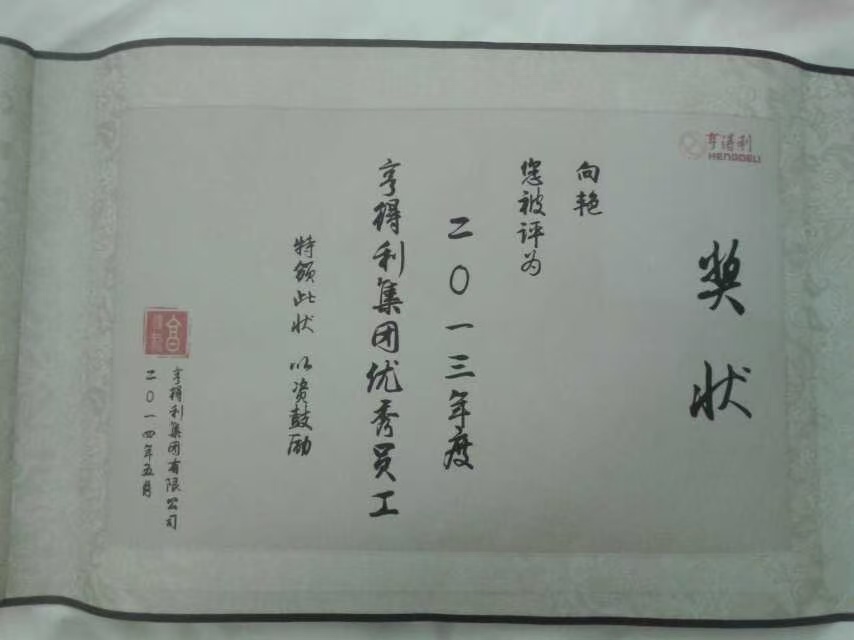 亨得利
HENGDELI
奖状
向艳
您被评为
二〇一三年度
亨得利集团优秀员工
特颁此状 以资鼓励
亨得利集团有限公司
二〇一四年五月